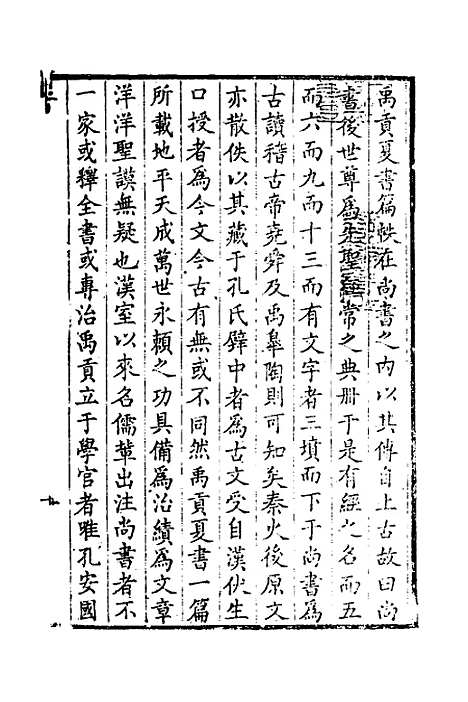 禹貢夏書篇帙在尚書之内以其傳自上古故曰尚
書後世尊爲先聖經常之典册于是有經之名而五
而六而九而十三而有文字者三墳而下于尚書爲
古讀稽古帝堯舜及禹皋陶則可知矣秦火後原文
亦散佚以其藏于孔氏壁中者爲古文受自漢伏生
口授者爲今文今古有無或不同然禹貢夏書一篇
所載地平天成萬世永賴之功具備爲治績爲文章
洋洋聖謨無疑也漢室以來名儒輩出注尚書者不
一家或釋全書或專治禹貢立于學官者唯孔安國